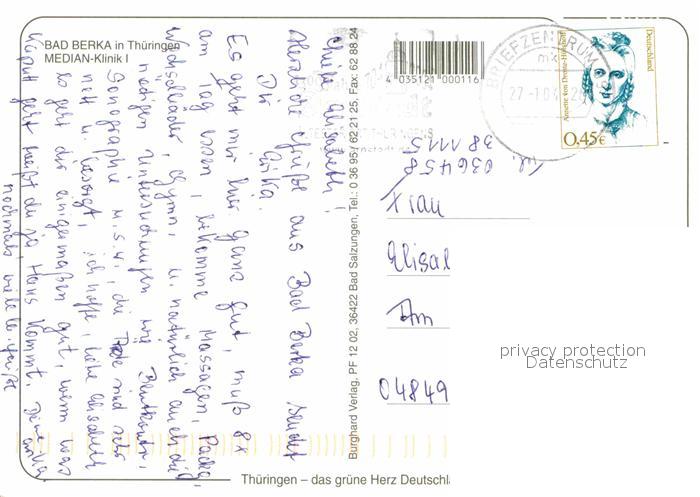 BAD BERKA in Thüringen
MEDIAN-Klinik I
Liebe Elisabeth!
Herzliche Grüße aus Bad Berka sendet
Dir Erika.
Es geht mir hier ganz gut, muß 6x
am Tag essen, bekomme Massagen,
Wechselbäder, Gymn. u. natürlich auch die
nötigen Untersuchungen wie
Sonographie u.s.w., die sind sehr
nett u. besorgt, ich hoffe, liebe Elisabeth
es geht dir einigermaßen gut, wenn was
kaputt geht weißt du ja Hans kommt.
nochmals viele l. Grüße
Burghard Verlag, PF 12 02, 36422 Bad Salzungen, Tel.: 0 36 95 / 62 21 25, Fax: 62 88 24
4 035121 000116
BRIEFZENTRUM
Deutschland
Annette von Droste-Hülshoff
0,45€
Tel. 036458
38 1115
Frau
Elisa
Am
04849
privacy protection
Datenschutz
Thüringen – das grüne Herz Deutschla